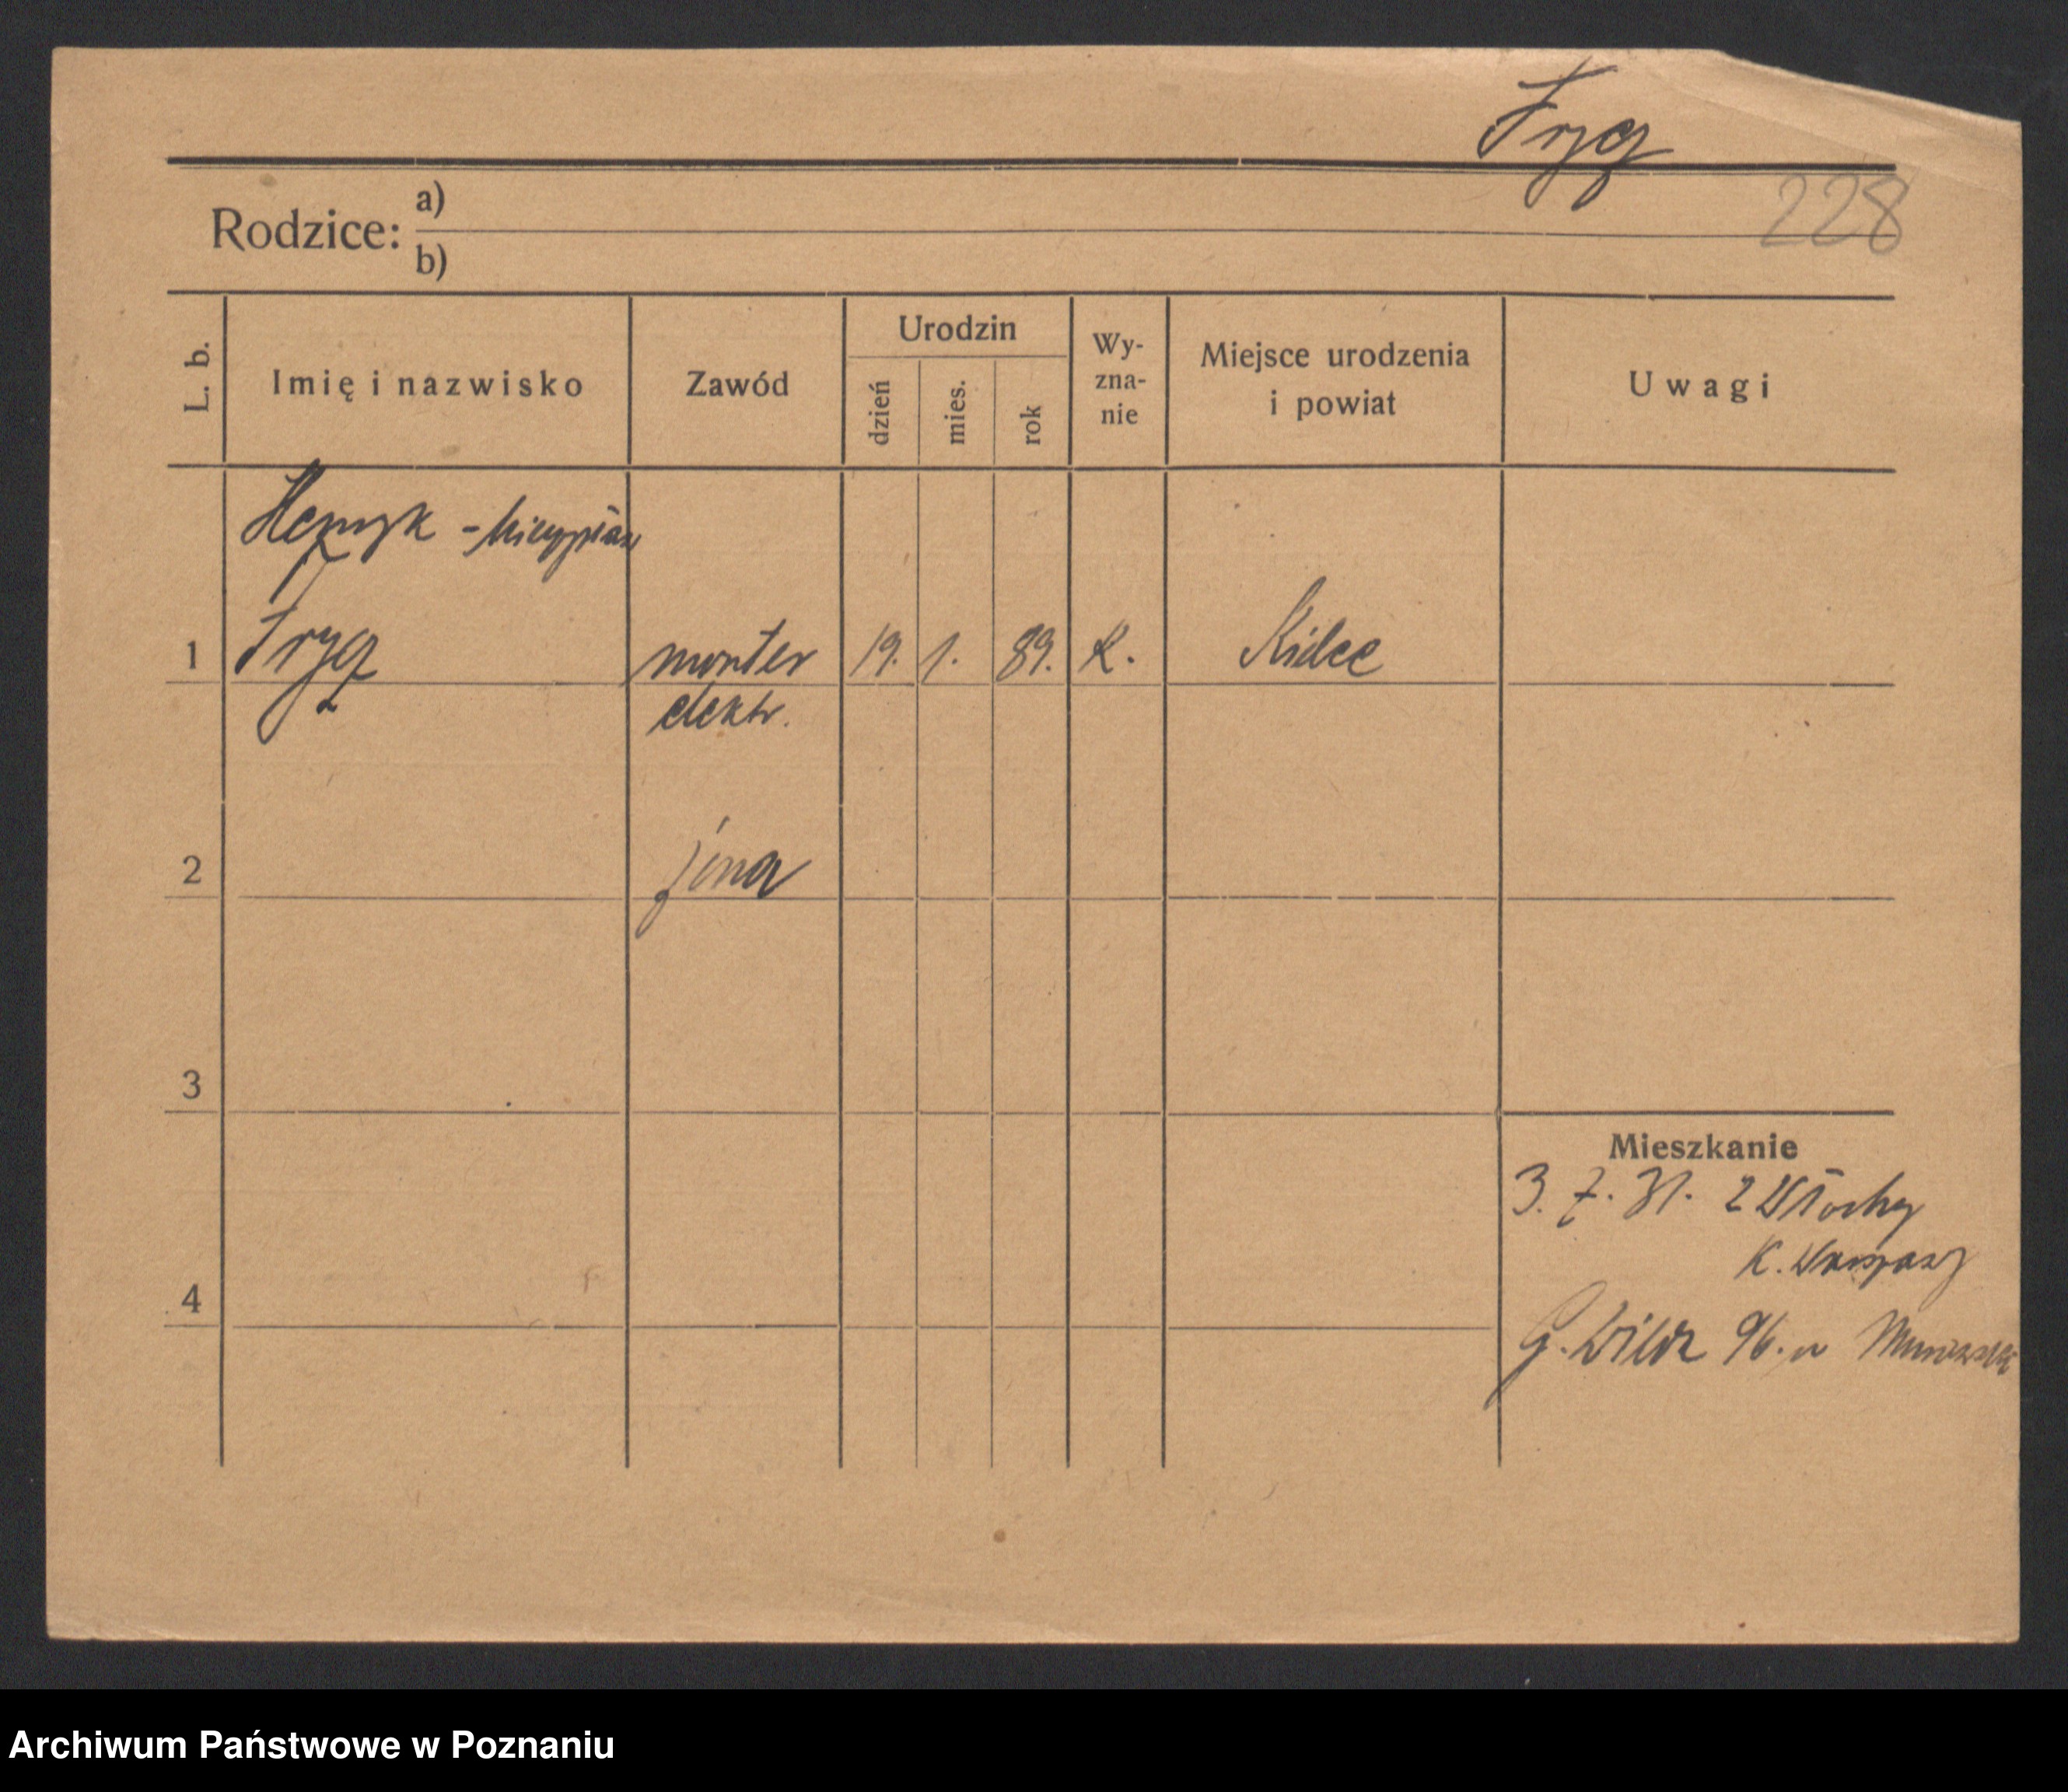 Frycz
228
Rodzice: a)
b)
L. b.
Imię i nazwisko
Zawód
Urodzin
dzień
mies.
rok
Wy-
zna-
nie
Miejsce urodzenia
i powiat
Uwagi
Henryk -
1 Frycz monter 19. 1. 89. K. Kielce
elektr.
2 żona
3
4
Mieszkanie
3. 7. 31. z Włochy
k. Warszawy
G. Wilda 96. u
Archiwum Państwowe w Poznaniu